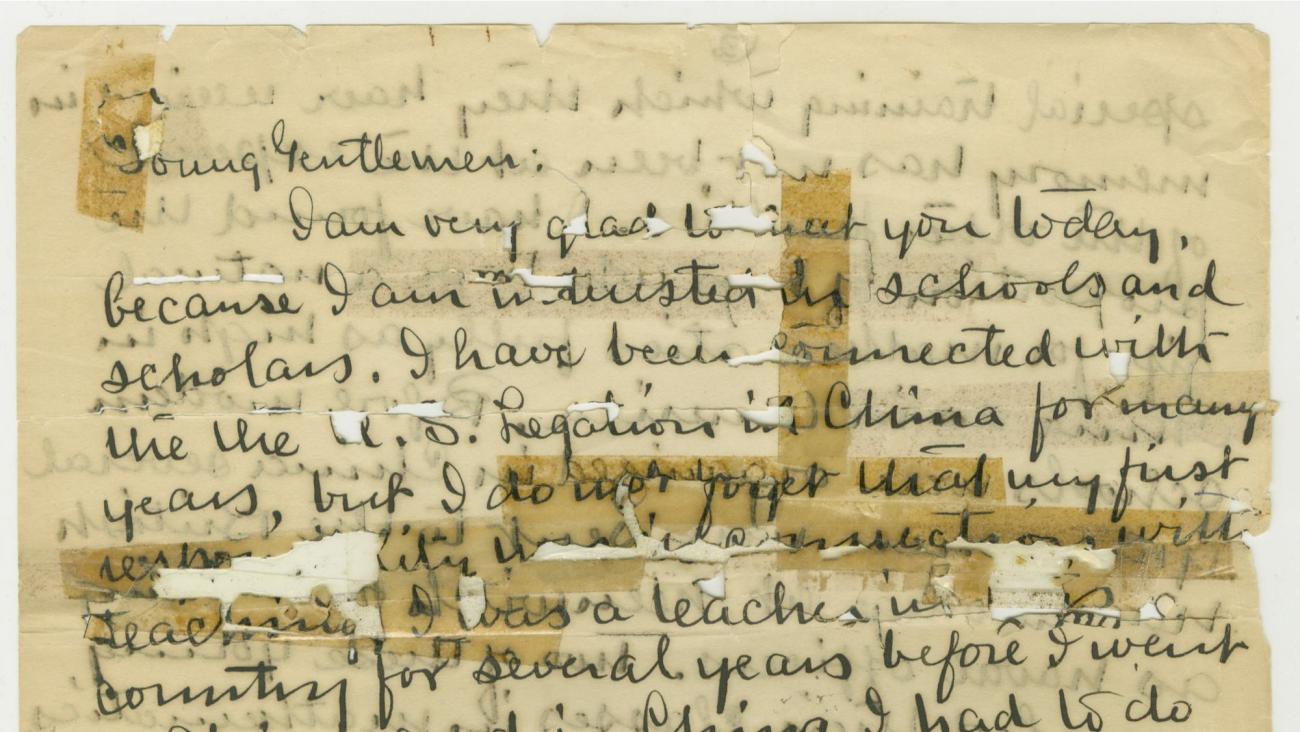 Young Gentlemen:
I am very glad to meet you today,
because I am interested in schools and
scholars. I have been connected with
the the U.S. Legation in China for many
years, but I do not forget that my first
was in connection with
teaching. I was a teacher in
country for several years before I went
China I had to do